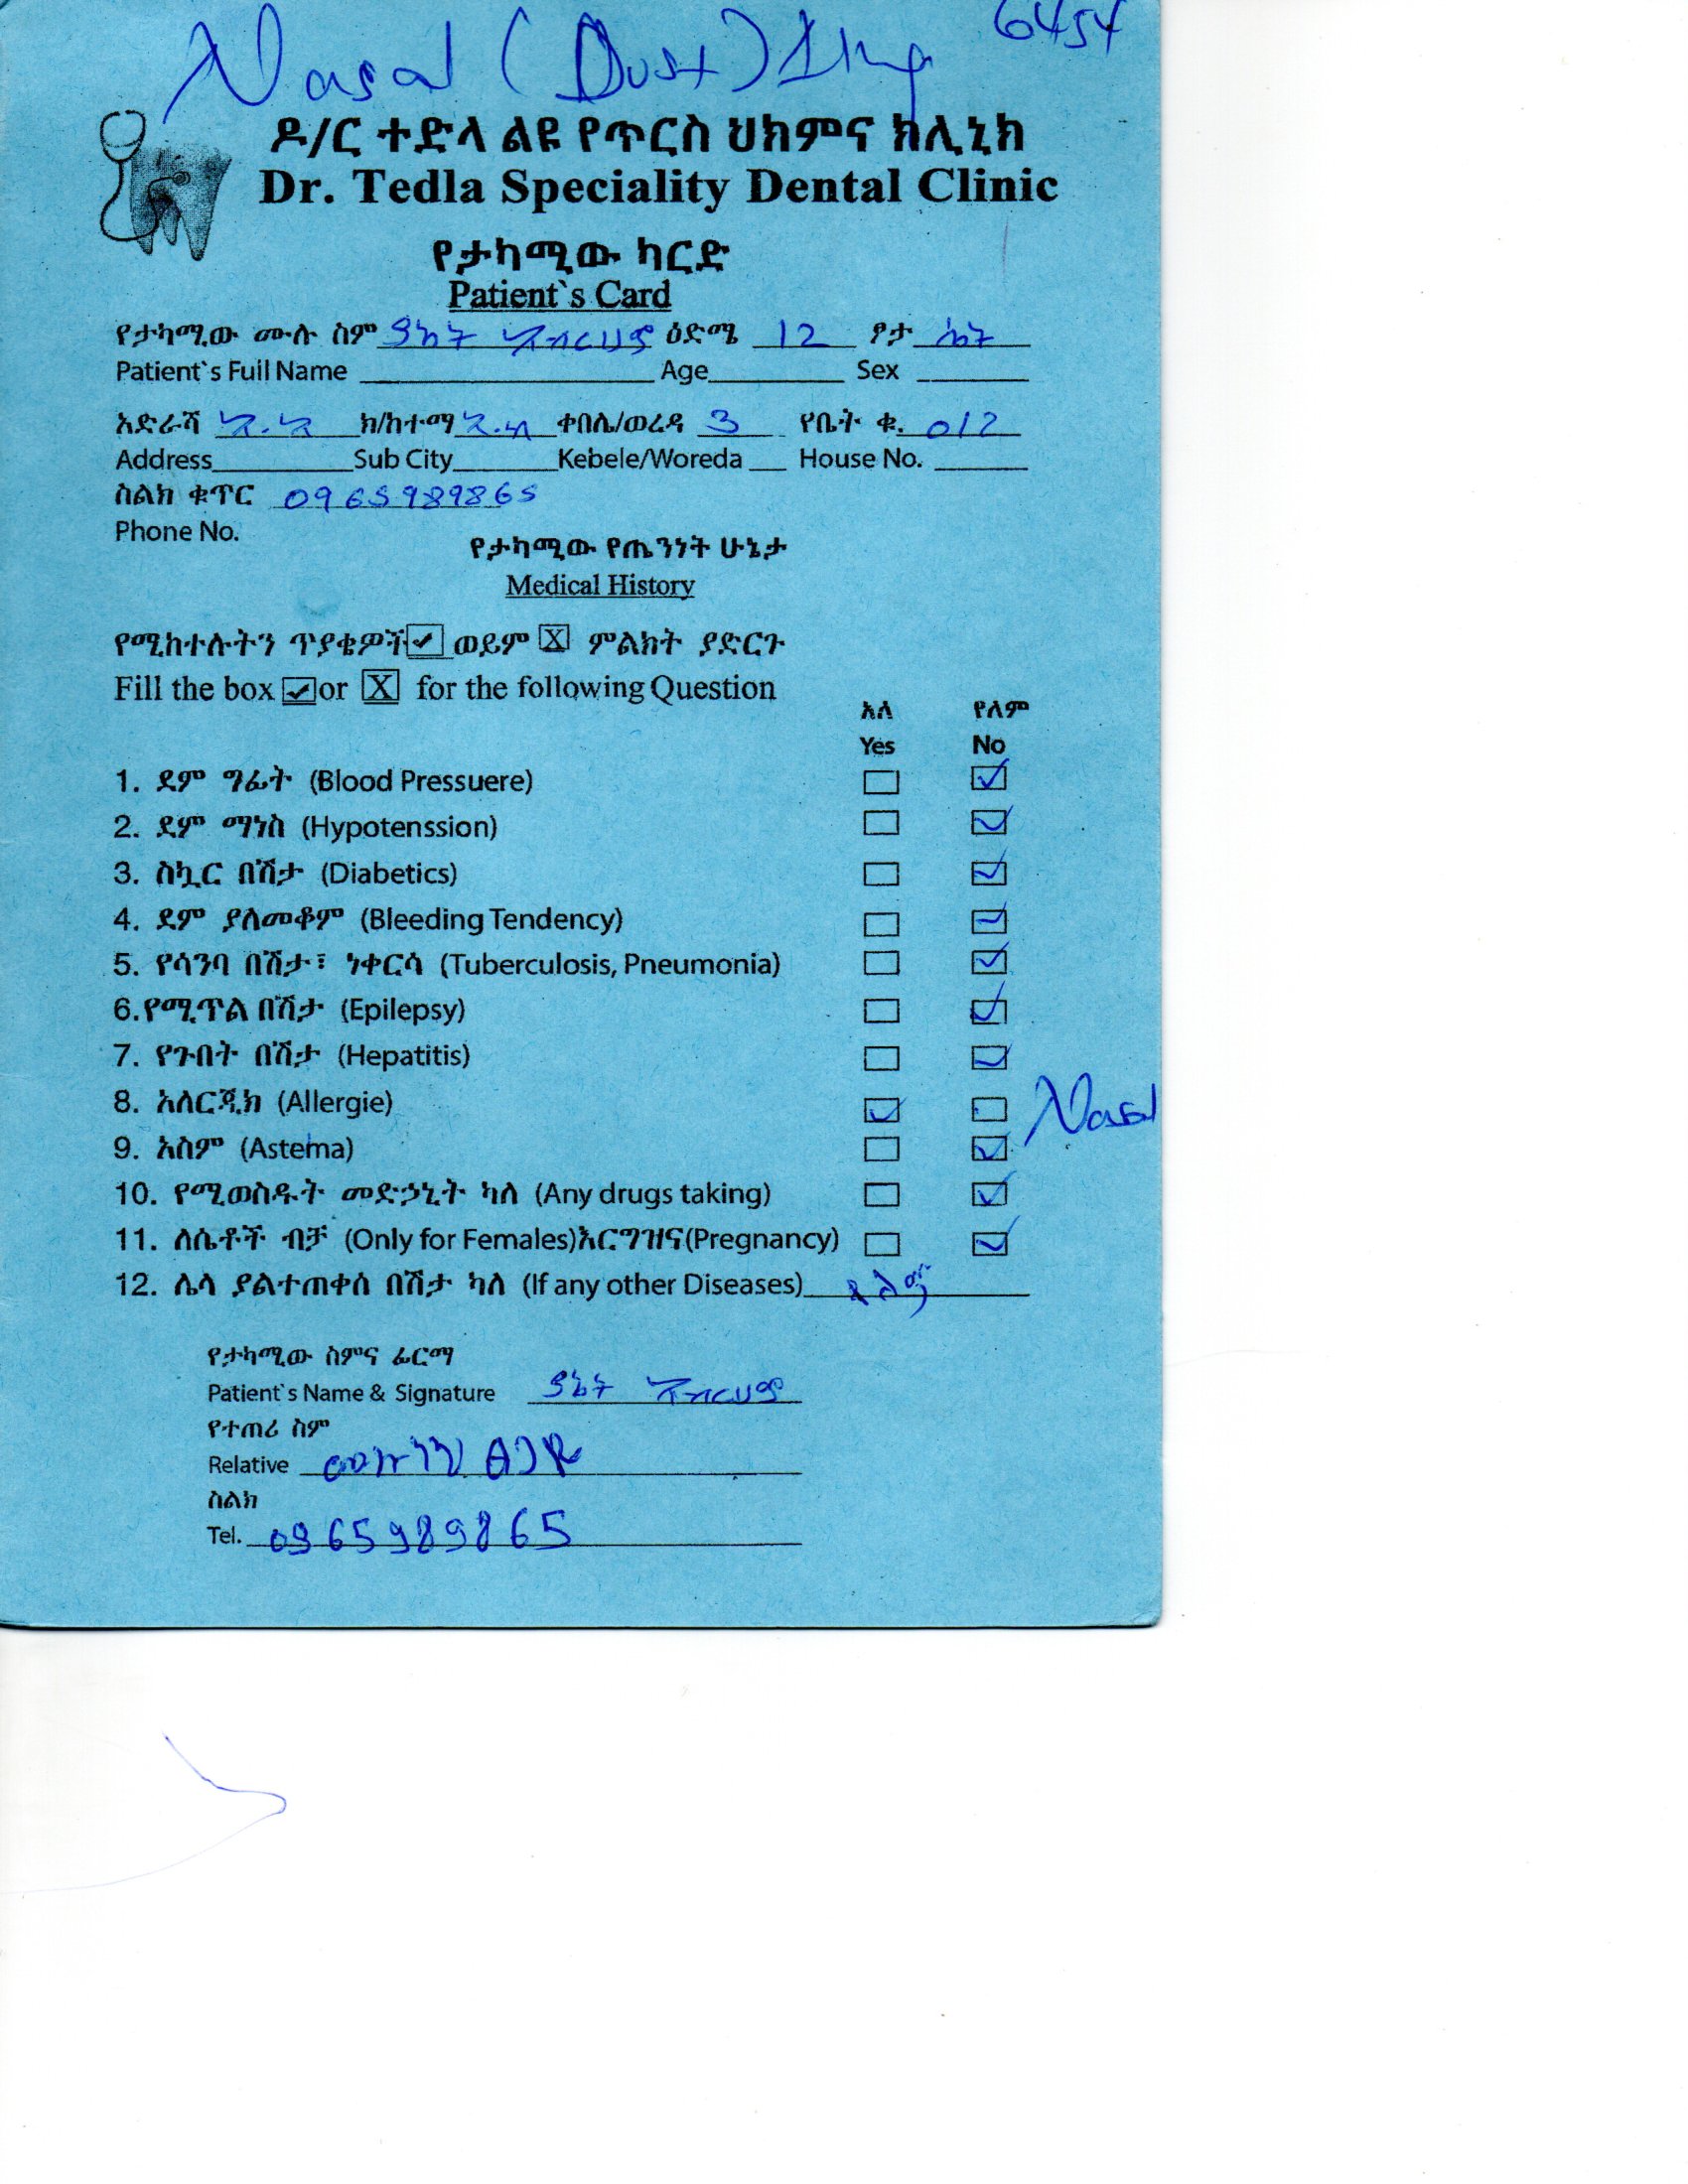 6454
Nasal (Dust)
ዶ/ር ተድላ ልዩ የጥርስ ህክምና ክሊኒክ
Dr. Tedla Speciality Dental Clinic
የታካሚው ካርድ
Patient`s Card
የታካሚው ሙሉ ስም አብርሀም ዕድሜ 12 ፆታ ሴት
Patient`s Full Name Age Sex
አድራሻ አ.አ ክ/ከተማ ቀበሌ/ወረዳ 3 የቤት ቁ. 012
Address Sub City Kebele/Woreda House No.
ስልክ ቁጥር 0965989865
Phone No.
የታካሚው የጤንነት ሁኔታ
Medical History
የሚከተሉትን ጥያቄዎች ✓ ወይም X ምልክት ያድርጉ
Fill the box ✓ or X for the following Question
አለ የለም
Yes No
1. ደም ግፊት (Blood Pressuere) ✓
2. ደም ማነስ (Hypotenssion) ✓
3. ስኳር በሽታ (Diabetics) ✓
4. ደም ያለመቆም (Bleeding Tendency) ✓
5. የሳንባ በሽታ፣ ነቀርሳ (Tuberculosis, Pneumonia) ✓
6.የሚጥል በሽታ (Epilepsy) ✓
7. የጉበት በሽታ (Hepatitis) ✓
8. አለርጂክ (Allergie) ✓ Nasal
9. አስም (Astema) ✓
10. የሚወስዱት መድኃኒት ካለ (Any drugs taking) ✓
11. ለሴቶች ብቻ (Only for Females)እርግዝና(Pregnancy) ✓
12. ሌላ ያልተጠቀሰ በሽታ ካለ (If any other Diseases) የለም
የታካሚው ስምና ፊርማ
Patient`s Name & Signature አብርሀም
የተጠሪ ስም
Relative
ስልክ
Tel. 0965989865